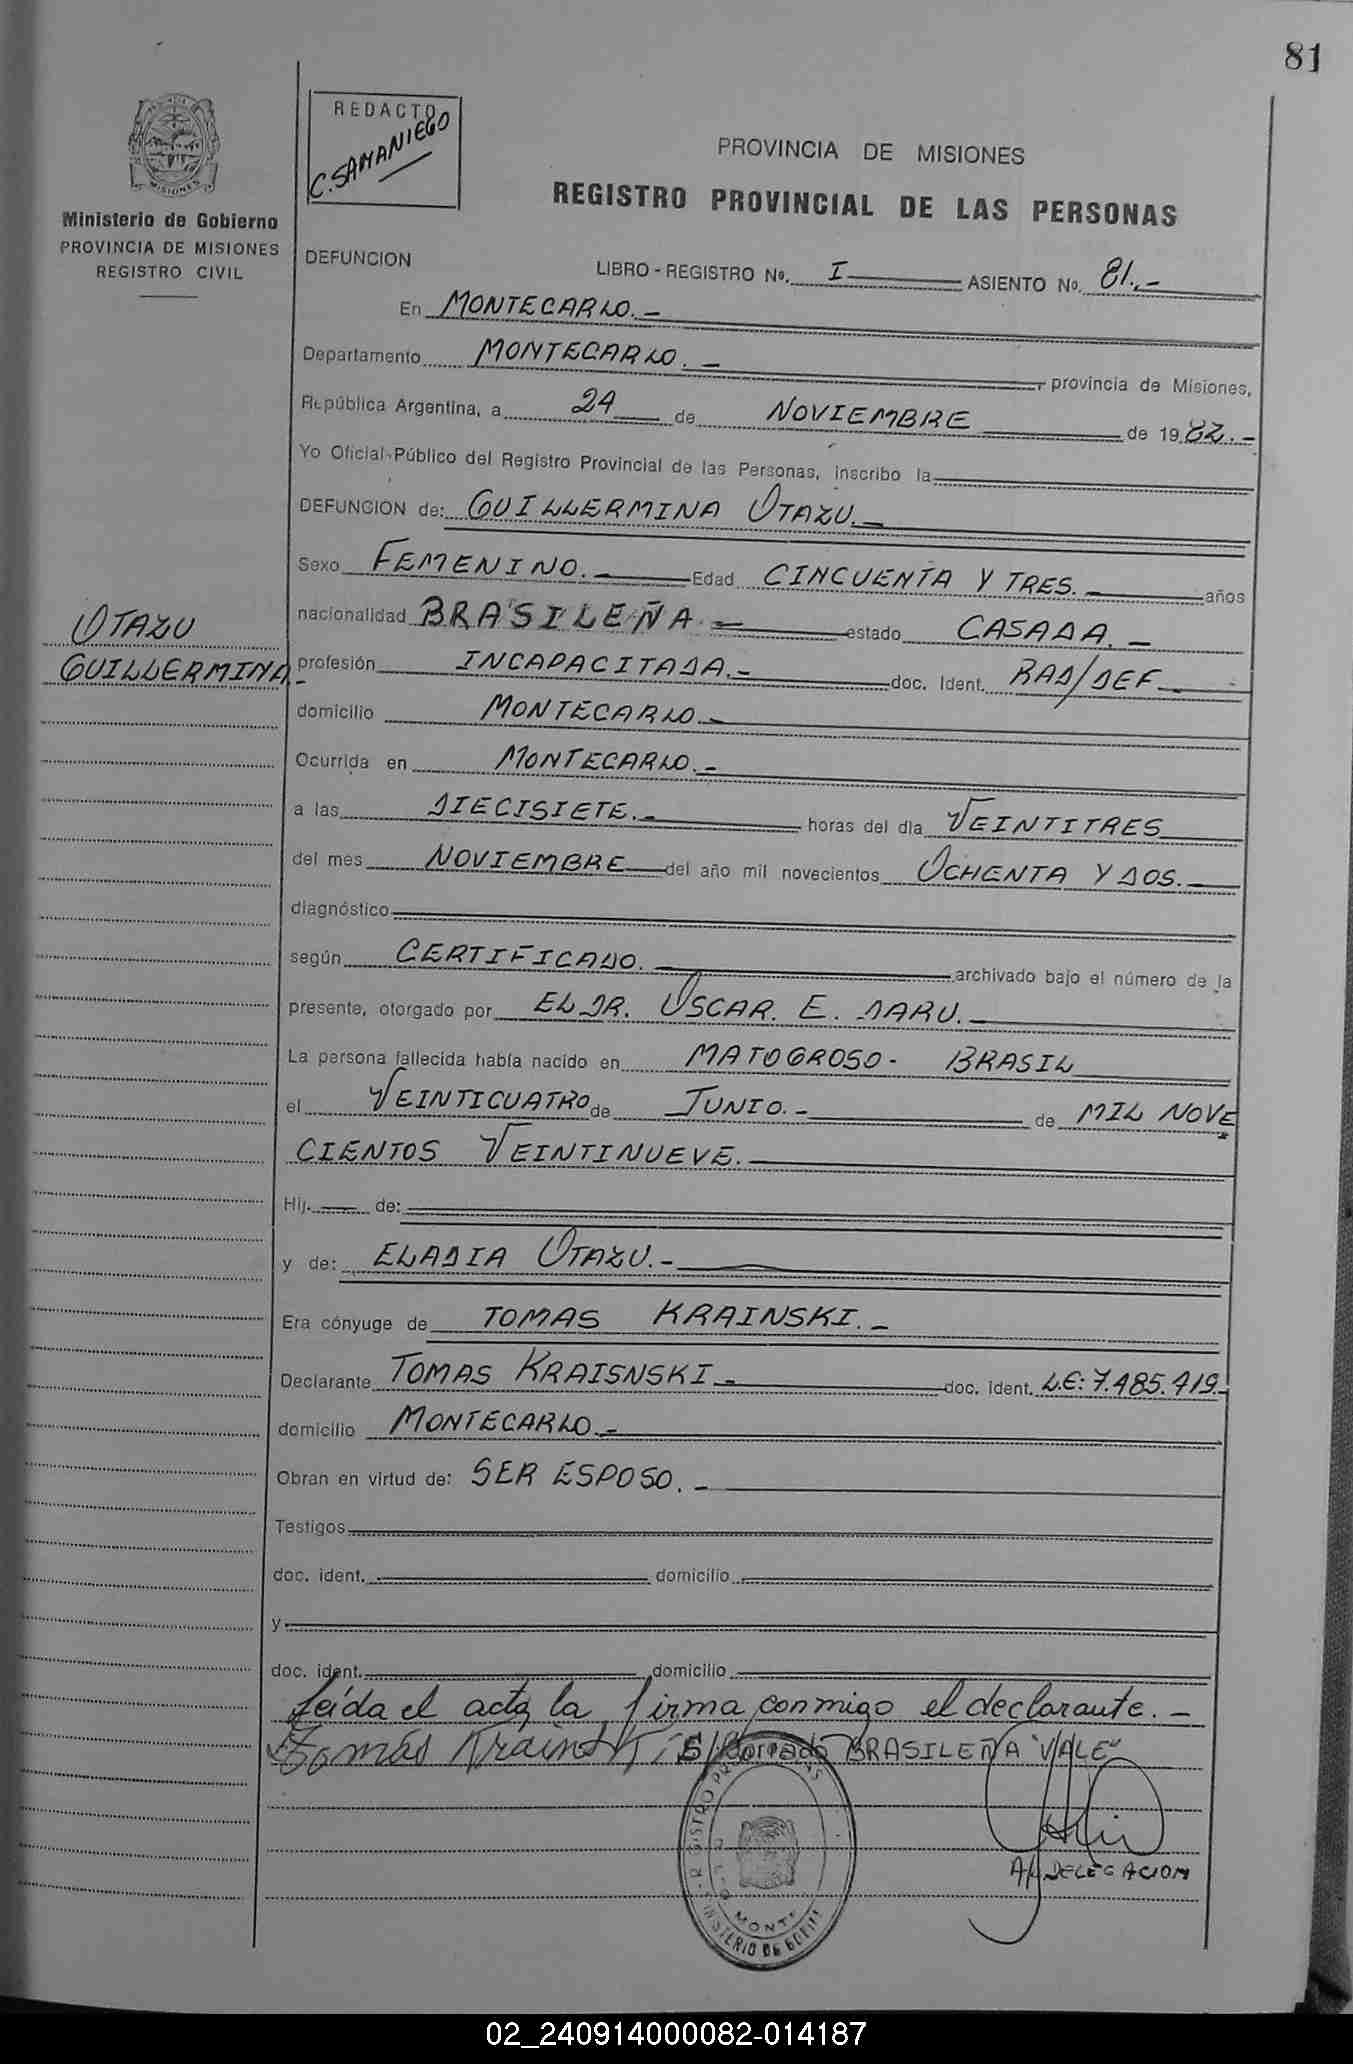 81
MISIONES
Ministerio de Gobierno
PROVINCIA DE MISIONES
REGISTRO CIVIL
REDACTO
C. SAMANIEGO
PROVINCIA DE MISIONES
REGISTRO PROVINCIAL DE LAS PERSONAS
DEFUNCION LIBRO - REGISTRO No. I ASIENTO No. 81.-
En MONTECARLO.-
Departamento MONTECARLO.- provincia de Misiones,
República Argentina, a 24 de NOVIEMBRE de 1982.-
Yo Oficial Público del Registro Provincial de las Personas, inscribo la
DEFUNCION de: GUILLERMINA OTAZU.-
Sexo FEMENINO.- Edad CINCUENTA Y TRES.- años
OTAZU
GUILLERMINA.-
nacionalidad BRASILEÑA.- estado CASADA.-
profesión INCAPACITADA.- doc. ident. RAD/DEF.-
domicilio MONTECARLO.-
Ocurrida en MONTECARLO.-
a las DIECISIETE.- horas del día VEINTITRES
del mes NOVIEMBRE del año mil novecientos OCHENTA Y DOS.-
diagnóstico
según CERTIFICADO. archivado bajo el número de la
presente, otorgado por EL DR. OSCAR. E. DARU.-
La persona fallecida había nacido en MATOGROSO- BRASIL
el VEINTICUATRO de JUNIO.- de MIL NOVE
CIENTOS VEINTINUEVE.
Hij. de:
y de: ELADIA OTAZU.-
Era cónyuge de TOMAS KRAINSKI.-
Declarante TOMAS KRAISNSKI.- doc. ident. L.E: 7.485.419.-
domicilio MONTECARLO.-
Obran en virtud de: SER ESPOSO.-
Testigos
doc. ident. domicilio
y
doc. ident. domicilio
Leída el acta la firma conmigo el declarante.-
Tomás Krainski S/Borrado BRASILEÑA "VALE"
MONTE
MINISTERIO DE GOBIE
A/DELEGACION
02_240914000082-014187